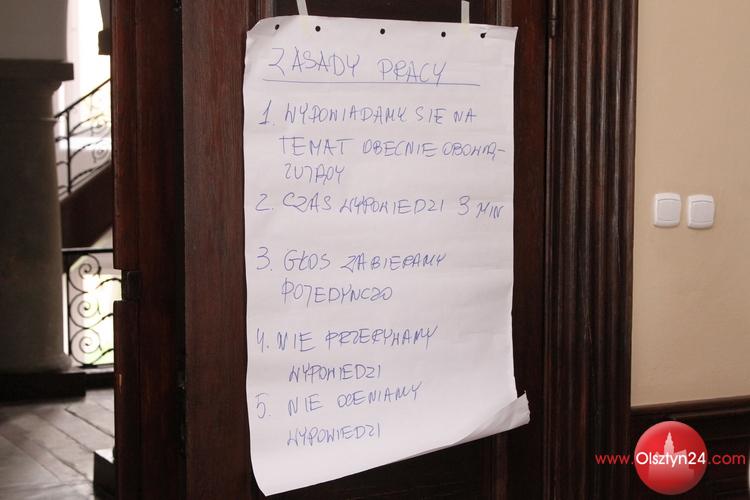 ZASADY PRACY
1. WYPOWIADAMY SIĘ NA
TEMAT OBECNIE OBOWIĄ-
ZUJĄDY
2. CZAS WYPOWIEDZI 3 MIN
3. GŁOS ZABIERAMY
POJEDYNCZO
4. NIE PRZERYWAMY
WYPOWIEDZI
5. NIE OCENIAMY
WYPOWIEDZI
www.Olsztyn24.com